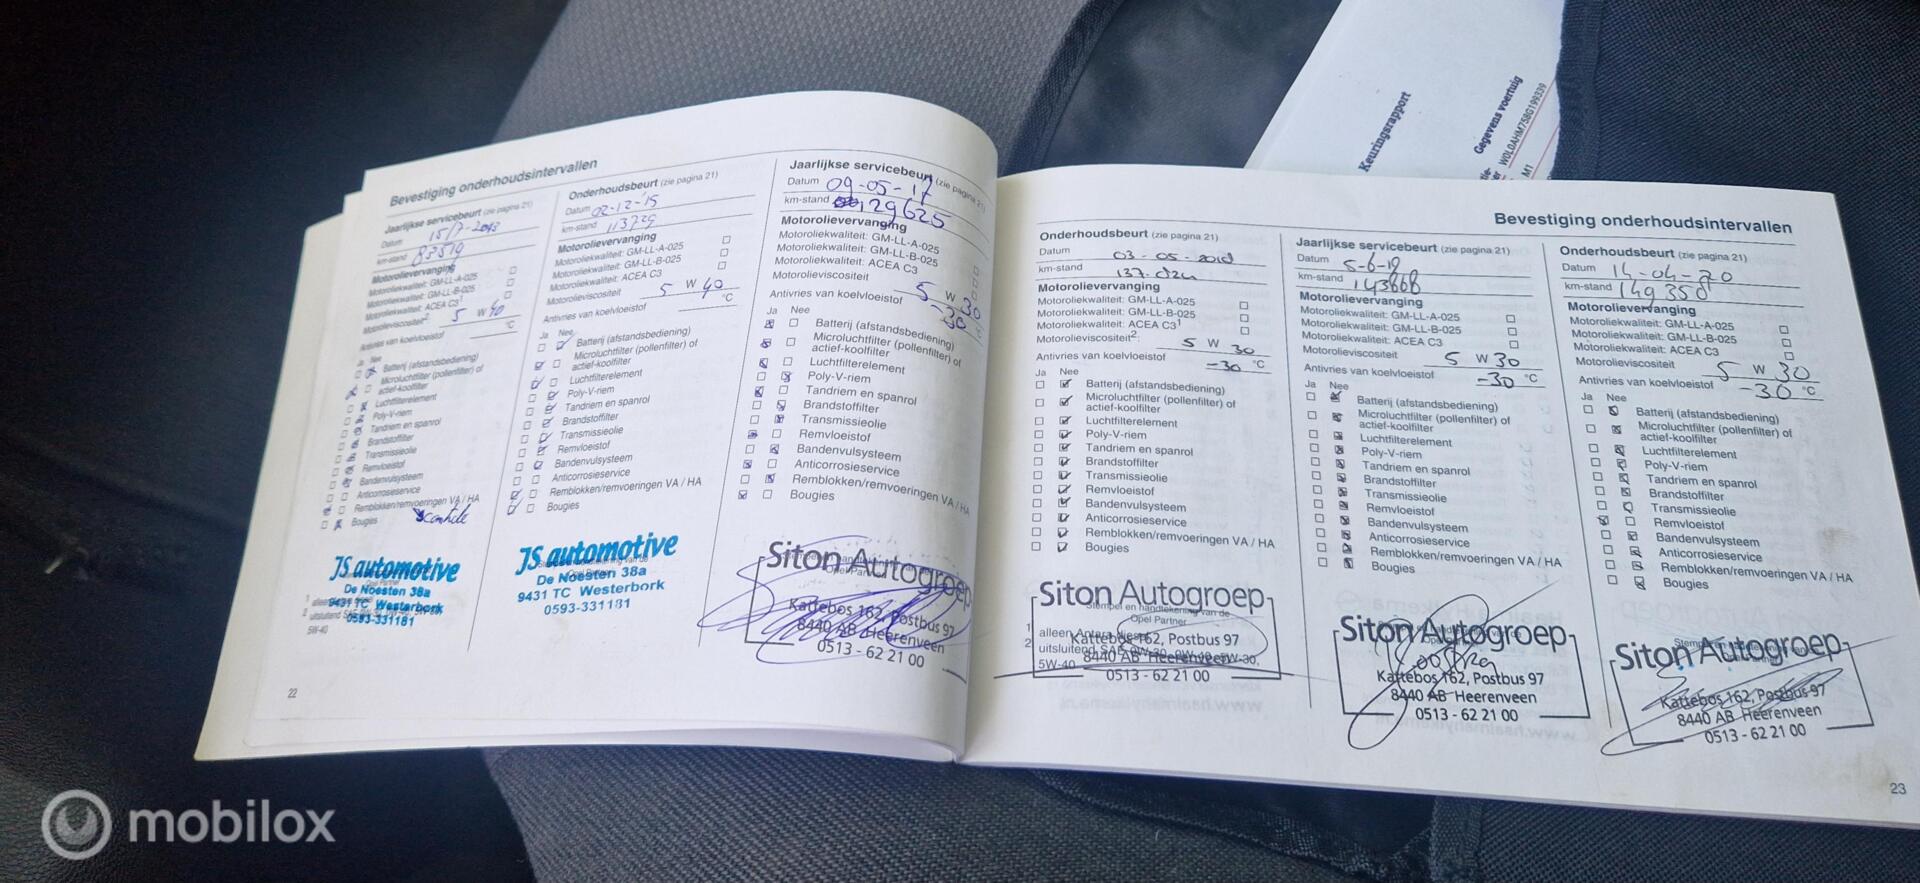 Bevestiging onderhoudsintervallen
Jaarlijkse servicebeurt (zie pagina 21)
Datum 15/7-2013
km-stand 83519
Motorolievervanging
Motoroliekwaliteit: GM-LL-A-025
Motoroliekwaliteit: GM-LL-B-025
Motoroliekwaliteit: ACEA C3¹
Motorolieviscositeit²: 5 W 40
Antivries van koelvloeistof °C
Ja Nee
Batterij (afstandsbediening)
Microluchtfilter (pollenfilter) of
actief-koolfilter
Luchtfilterelement
Poly-V-riem
Tandriem en spanrol
Brandstoffilter
Transmissieolie
Remvloeistof
Bandenvulsysteem
Anticorrosieservice
Remblokken/remvoeringen VA / HA
Bougies controle
JS automotive
De Noesten 38a
9431 TC Westerbork
0593-331181
5W-40
22
Onderhoudsbeurt (zie pagina 21)
Datum 02-12-'15
km-stand 113729
Motorolievervanging
Motoroliekwaliteit: GM-LL-A-025
Motoroliekwaliteit: GM-LL-B-025
Motoroliekwaliteit: ACEA C3
Motorolieviscositeit 5 W 40
Antivries van koelvloeistof °C
Ja Nee
Batterij (afstandsbediening)
Microluchtfilter (pollenfilter) of
actief-koolfilter
Luchtfilterelement
Poly-V-riem
Tandriem en spanrol
Brandstoffilter
Transmissieolie
Remvloeistof
Bandenvulsysteem
Anticorrosieservice
Remblokken/remvoeringen VA / HA
Bougies
JS automotive
De Noesten 38a
9431 TC Westerbork
0593-331181
Jaarlijkse servicebeurt (zie pagina 21)
Datum 09-05-17
km-stand 129625
Motorolievervanging
Motoroliekwaliteit: GM-LL-A-025
Motoroliekwaliteit: GM-LL-B-025
Motoroliekwaliteit: ACEA C3
Motorolieviscositeit 5 W 30
Antivries van koelvloeistof -30
Ja Nee
Batterij (afstandsbediening)
Microluchtfilter (pollenfilter) of
actief-koolfilter
Luchtfilterelement
Poly-V-riem
Tandriem en spanrol
Brandstoffilter
Transmissieolie
Remvloeistof
Bandenvulsysteem
Anticorrosieservice
Remblokken/remvoeringen VA / HA
Bougies
Siton Autogroep
Kattebos 162, Postbus 97
8440 AB Heerenveen
0513 - 62 21 00
Bevestiging onderhoudsintervallen
Onderhoudsbeurt (zie pagina 21)
Datum 03-05-2018
km-stand
Motorolievervanging
Motoroliekwaliteit: GM-LL-A-025
Motoroliekwaliteit: GM-LL-B-025
Motoroliekwaliteit: ACEA C3¹
Motorolieviscositeit²: 5 W 30
Antivries van koelvloeistof -30 °C
Ja Nee
Batterij (afstandsbediening)
Microluchtfilter (pollenfilter) of
actief-koolfilter
Luchtfilterelement
Poly-V-riem
Tandriem en spanrol
Brandstoffilter
Transmissieolie
Remvloeistof
Bandenvulsysteem
Anticorrosieservice
Remblokken/remvoeringen VA / HA
Bougies
Siton Autogroep
Stempel en handtekening van de
Opel Partner
Kattebos 162, Postbus 97
8440 AB Heerenveen
0513 - 62 21 00
Jaarlijkse servicebeurt (zie pagina 21)
Datum 5-6-19
km-stand 143668
Motorolievervanging
Motoroliekwaliteit: GM-LL-A-025
Motoroliekwaliteit: GM-LL-B-025
Motoroliekwaliteit: ACEA C3
Motorolieviscositeit 5 W 30
Antivries van koelvloeistof -30 °C
Ja Nee
Batterij (afstandsbediening)
Microluchtfilter (pollenfilter) of
actief-koolfilter
Luchtfilterelement
Poly-V-riem
Tandriem en spanrol
Brandstoffilter
Transmissieolie
Remvloeistof
Bandenvulsysteem
Anticorrosieservice
Remblokken/remvoeringen VA / HA
Bougies
Siton Autogroep
Kattebos 162, Postbus 97
8440 AB Heerenveen
0513 - 62 21 00
Onderhoudsbeurt (zie pagina 21)
Datum 14-04-20
km-stand 149350
Motorolievervanging
Motoroliekwaliteit: GM-LL-A-025
Motoroliekwaliteit: GM-LL-B-025
Motoroliekwaliteit: ACEA C3
Motorolieviscositeit 5 W 30
Antivries van koelvloeistof -30 °C
Ja Nee
Batterij (afstandsbediening)
Microluchtfilter (pollenfilter) of
actief-koolfilter
Luchtfilterelement
Poly-V-riem
Tandriem en spanrol
Brandstoffilter
Transmissieolie
Remvloeistof
Bandenvulsysteem
Anticorrosieservice
Remblokken/remvoeringen VA / HA
Bougies
Siton Autogroep
Kattebos 162, Postbus 97
8440 AB Heerenveen
0513 - 62 21 00
23
Keuringsrapport
Gegevens voertuig
W0L0AHM758G199339
M1
mobilox